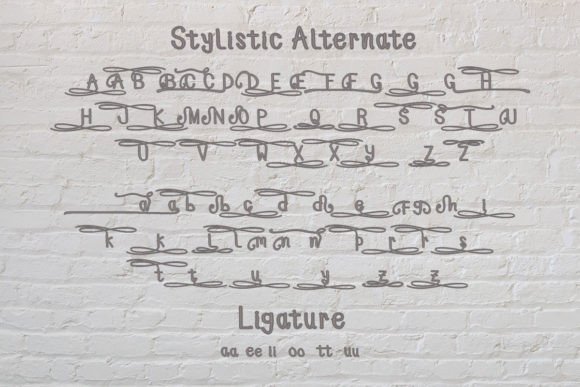 Stylistic Alternate
A A B B C C D D E E F F G G G H
H J K M N O P Q R S S T U
U V W X X Y Z Z
a a b b c d d e f g h i
k k l l m n n p r r s
t t u y z z
Ligature
aa ee ii oo tt uu